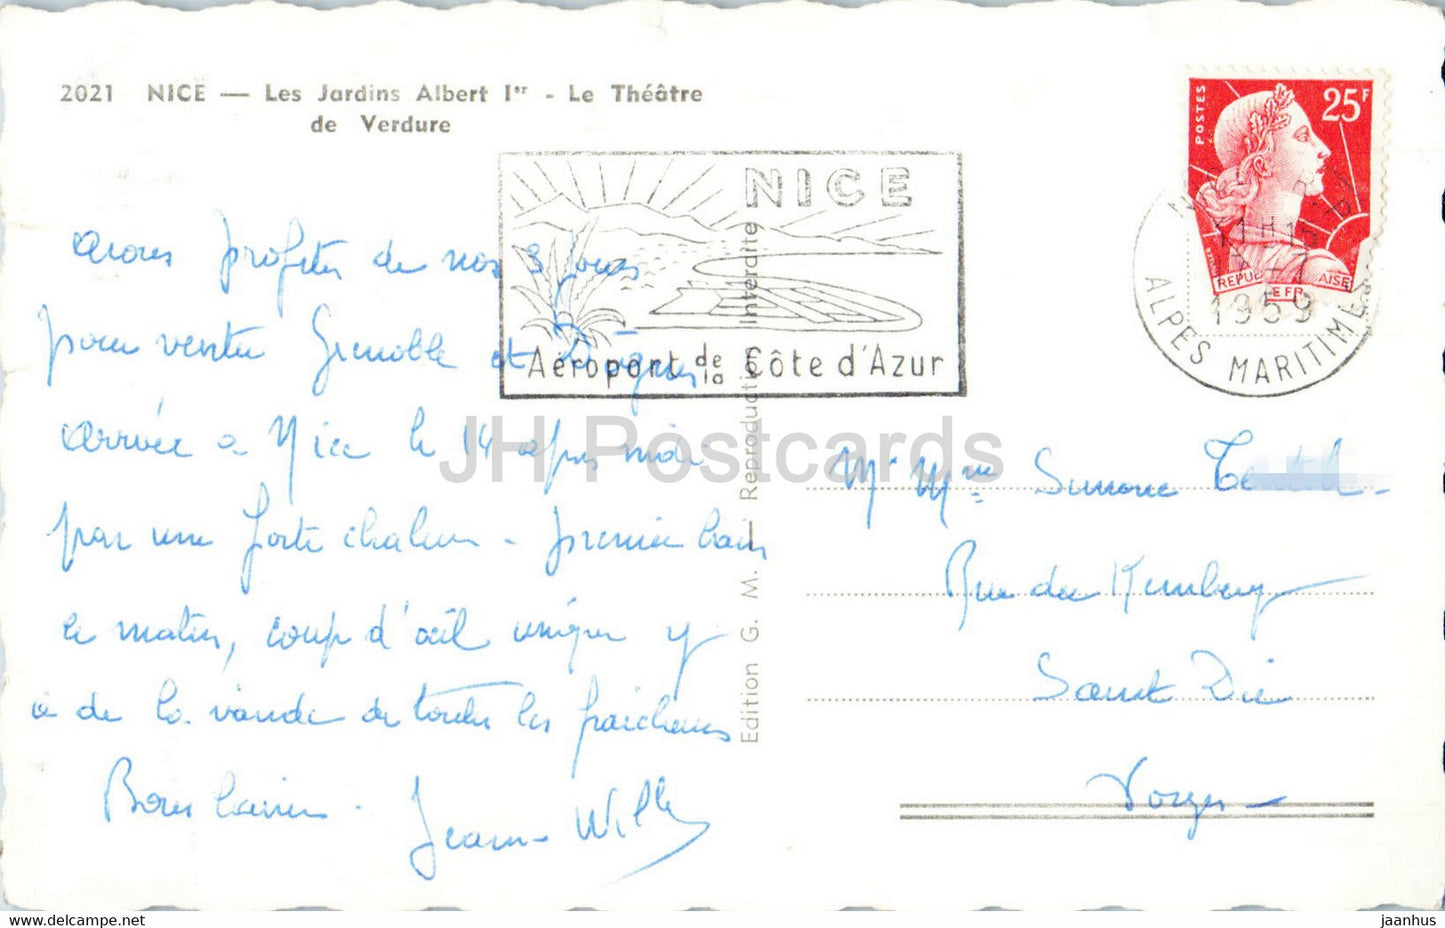 2021 NICE — Les Jardins Albert Ier - Le Théâtre
de Verdure
POSTES
25F
REPU AISE
E FR
NICE
Aéroport de la Côte d'Azur
11H15
17-7
1959
ALPES MARITIME
avons profiter de nos 3 jours
pour visiter Grenoble et Digne
arrivée à Nice le 14 après midi
par une forte chaleur - premier bain
le matin, coup d'œil unique y
a de la viande de toutes les fraicheurs
Bons baisers.
Jean-Willy
Edition G. M. - Reproduction Interdite
Mr Mme Simone
Rue du Kemberg
Saint Dié
Vosges
JH Postcards
jaanhus